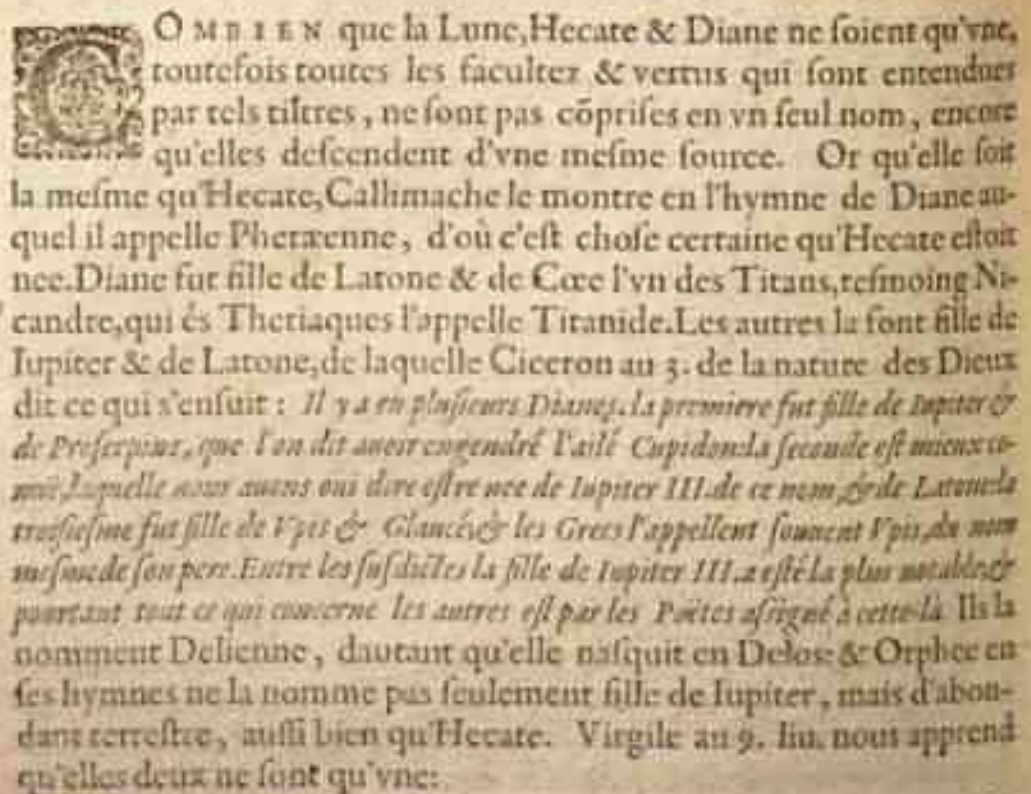 COMBIEN que la Lune, Hecate & Diane ne ſoient qu'vne,
toutefois toutes les facultez & vertus qui ſont entendues
par tels tiltres, ne ſont pas cõpriſes en vn ſeul nom, encore
qu'elles deſcendent d'vne meſme ſource. Or qu'elle ſoit
la meſme qu'Hecate, Callimache le montre en l'hymne de Diane au-
quel il appelle Pheræenne, d'où c'eſt choſe certaine qu'Hecate eſtoit
nee. Diane fut fille de Latone & de Cœe l'vn des Titans, teſmoing Ni-
candre, qui és Theriaques l'appelle Titanide. Les autres la font fille de
Iupiter & de Latone, de laquelle Ciceron au 3. de la nature des Dieux
dit ce qui s'enſuit: Il y a eu pluſieurs Dianes. la premiere fut fille de Iupiter &
de Proſerpine, que l'on dit auoir engendré l'ailé Cupidon: la ſeconde eſt mieux co-
nuë, laquelle nous auons oui dire eſtre nee de Iupiter III. de ce nom, & de Latone: la
troiſieſme fut fille de Vpis & Glancé, & les Grecs l'appellent ſouuent Vpis, du nom
meſme de ſon pere. Entre les ſuſdictes la fille de Iupiter III. a eſté la plus notable, &
pourtant tout ce qui concerne les autres eſt par les Poëtes aſsigné à cette-là. Ils la
nomment Delienne, dautant qu'elle naſquit en Delos: & Orphee en
ſes hymnes ne la nomme pas ſeulement fille de Iupiter, mais d'abon-
dant terreſtre, auſſi bien qu'Hecate. Virgile au 9. liu. nous apprend
qu'elles deux ne ſont qu'vne: